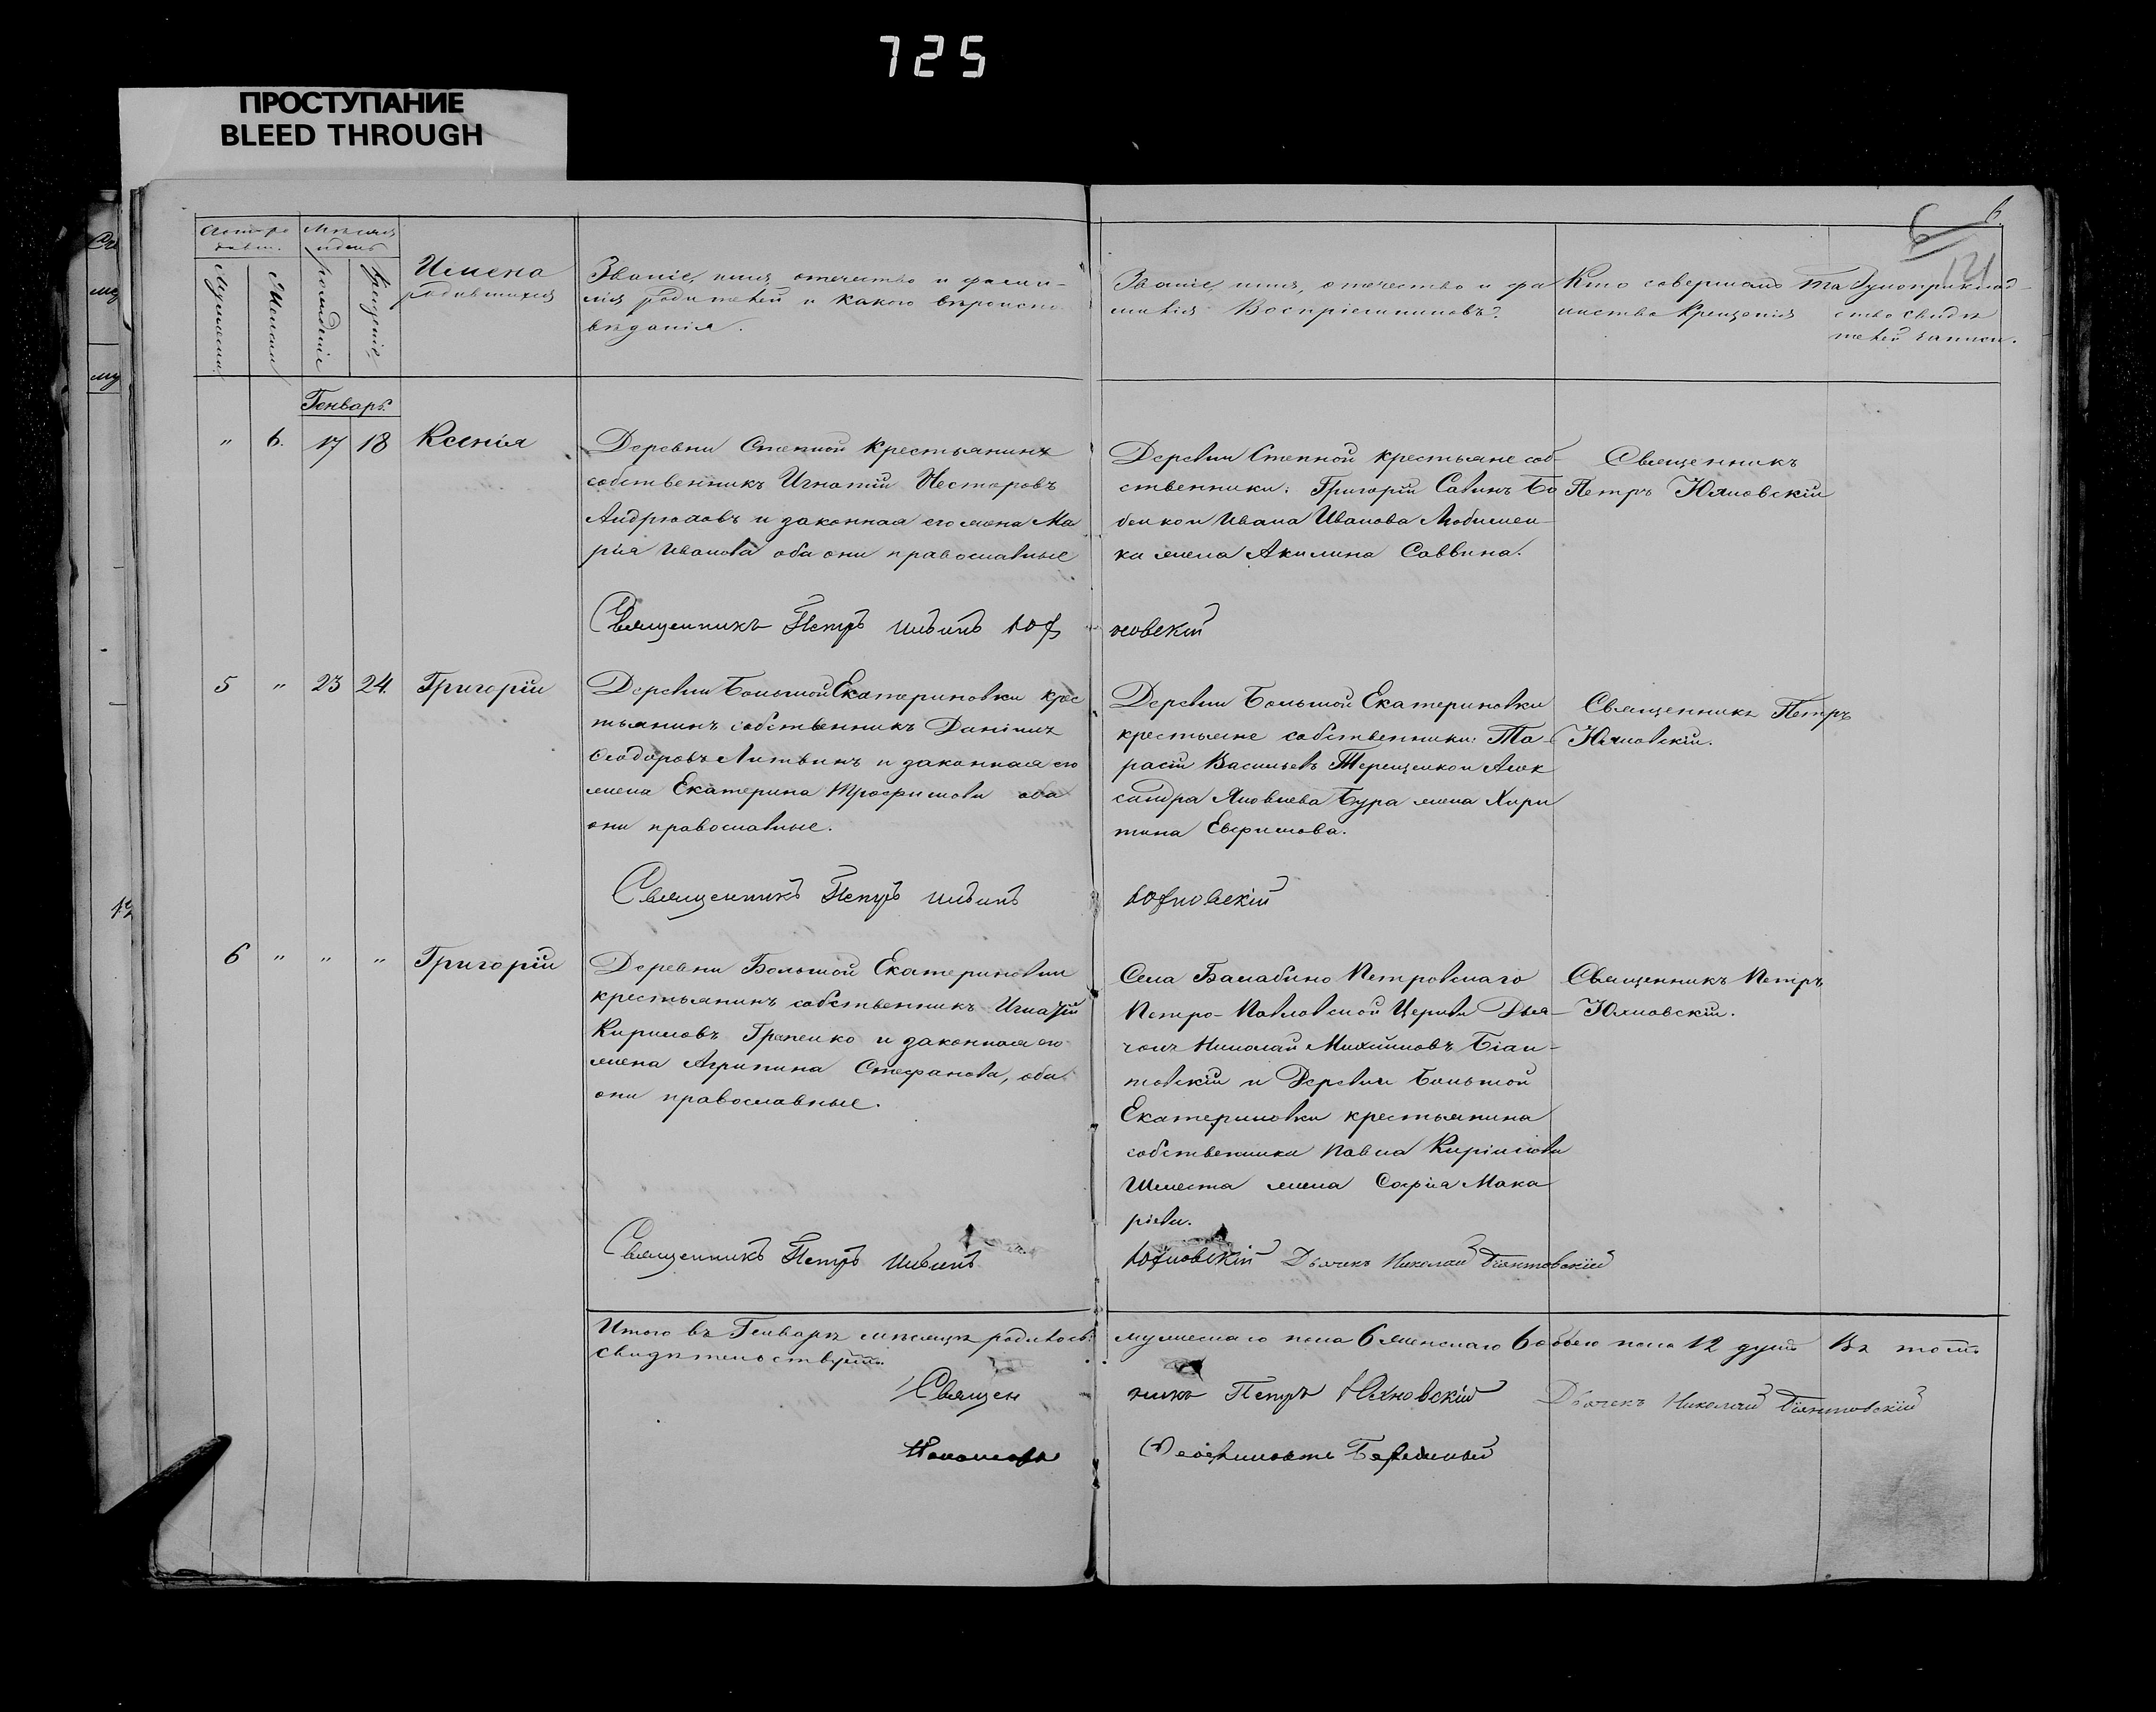 725
ПРОСТУПАНИЕ
BLEED THROUGH
6.
6
121
Мужеска
Женска
рожденіе
крещеніе
Имена
родившихся
Званіе, имя, отечество и фами-
лія родителей и какого вѣроиспо-
вѣданія.
Званіе, имя, отечество и фа
милія Воспріемниковъ?
Кто совершалъ та
инство Крещенія
Рукоприклад-
ство свидѣ
телей записи.
Генварь.
" 6. 17 18 Ксенія
Деревни Степной Крестьянинъ
собственникъ Игнатій Несторовъ
и законная его жена Ма
рія Иванова оба они православные
Деревни Степной крестьяне соб-
ственники: Григорій Савинъ Бо
бенко и Ивана Иванова Любимен-
ки жена Акилина Саввина.
Священникъ
Петръ Юхновскій
Священникъ Петръ Ильинъ Юх
новскій
5 " 23 24. Григорій
Деревни Большой Екатериновки крес
тьянинъ собственникъ Даніилъ
Ѳеодоровъ Литвинъ и законная его
жена Екатерина Трофимова оба
они православные.
Деревни Большой Екатериновки
крестьяне собственники: Та-
расій Васильевъ Терещенко и Алек
сандра Яковлева Бура жена Хари
тина Евфимова.
Священникъ Петръ
Юхновскій.
Священникъ Петръ Ильинъ
Юхновскій
6 " " " Григорій
Деревни Большой Екатериновки
крестьянинъ собственникъ Игнатій
Кириловъ Гриненко и законная его
жена Агрипина Стефанова, оба
они православные.
Села Балабино Петровскаго
Петро-Павловской Церкви Дья-
чокъ Николай Михайловъ Біан-
товскій и Деревни Большой
Екатериновки крестьянина
собственника Павла Кирилова
Шмата жена Софія Мака
ріева.
Священникъ Петръ
Юхновскій.
Священникъ Петръ Ильинъ
Юхновскій Дьячекъ Николай Біянтовскій
Итого въ Генварѣ мѣсяцѣ родилось:
мужескаго пола 6 женскаго 6 обоего пола 12 душъ Въ томъ
свидѣтельствуемъ.
Священ
никъ Петръ Юхновскій
Дьячекъ Николай Біянтовскій
Пономарь